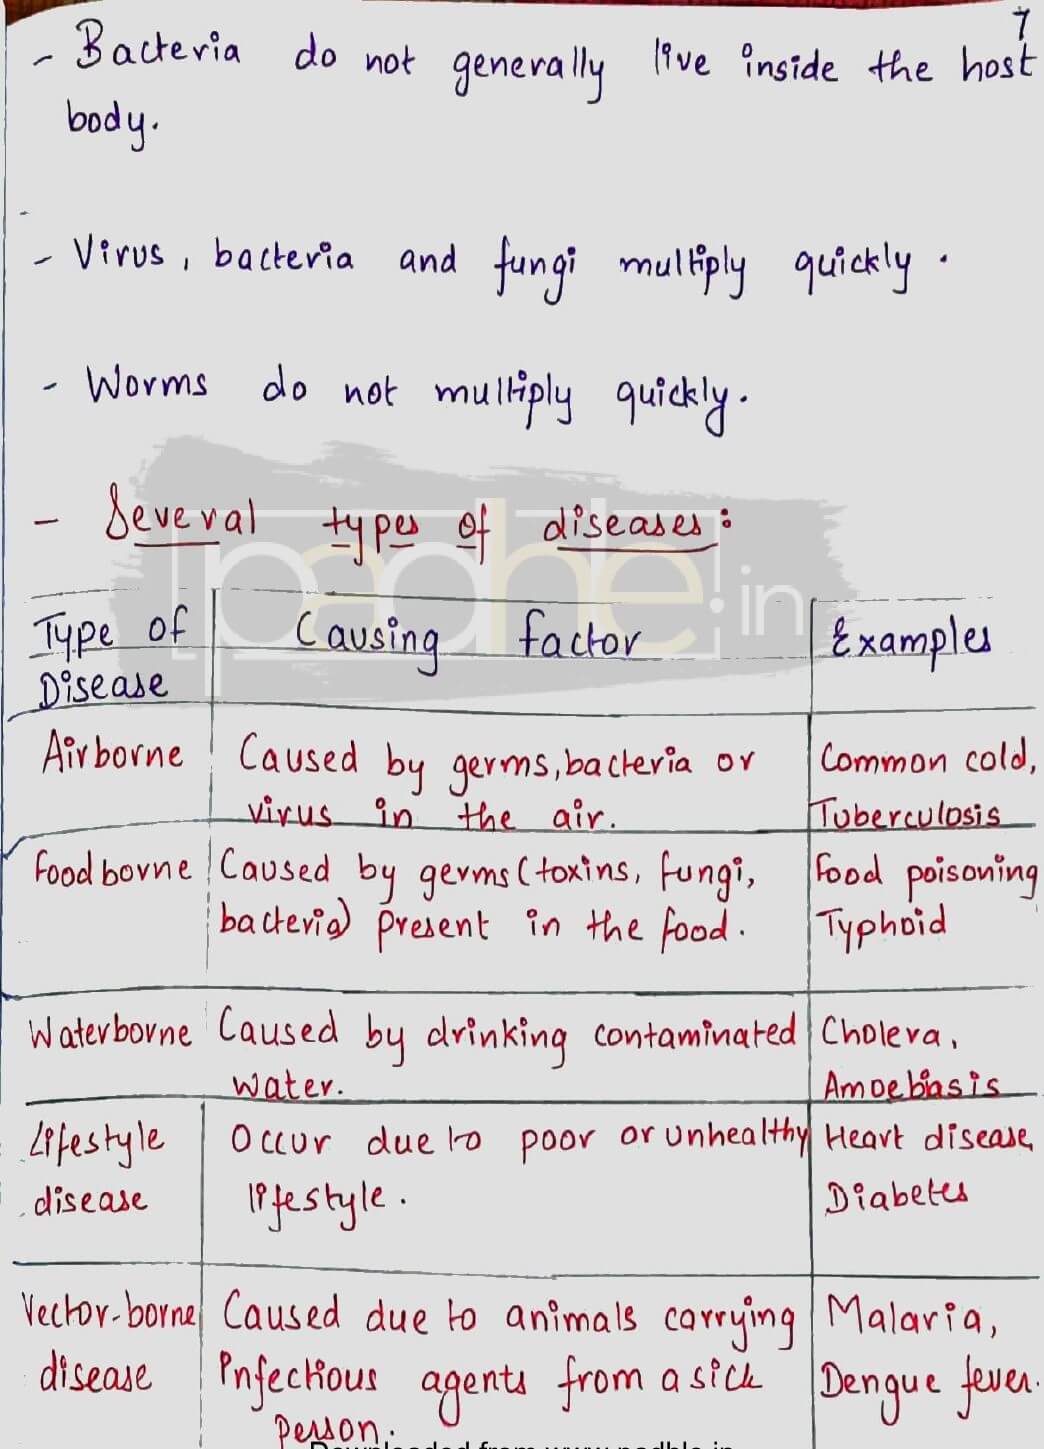 7
- Bacteria do not generally live inside the host
body.
- Virus, bacteria and fungi multiply quickly.
- Worms do not multiply quickly.
- Several types of diseases:
padhle.in
Type of Causing factor Examples
Disease
Airborne Caused by germs, bacteria or Common cold,
virus in the air. Tuberculosis
Foodborne Caused by germs (toxins, fungi, Food poisoning
bacteria) present in the food. Typhoid
Waterborne Caused by drinking contaminated Cholera,
water. Amoebiasis
Lifestyle Occur due to poor or unhealthy Heart disease,
disease lifestyle. Diabetes
Vector-borne Caused due to animals carrying Malaria,
disease infectious agents from a sick Dengue fever.
person.